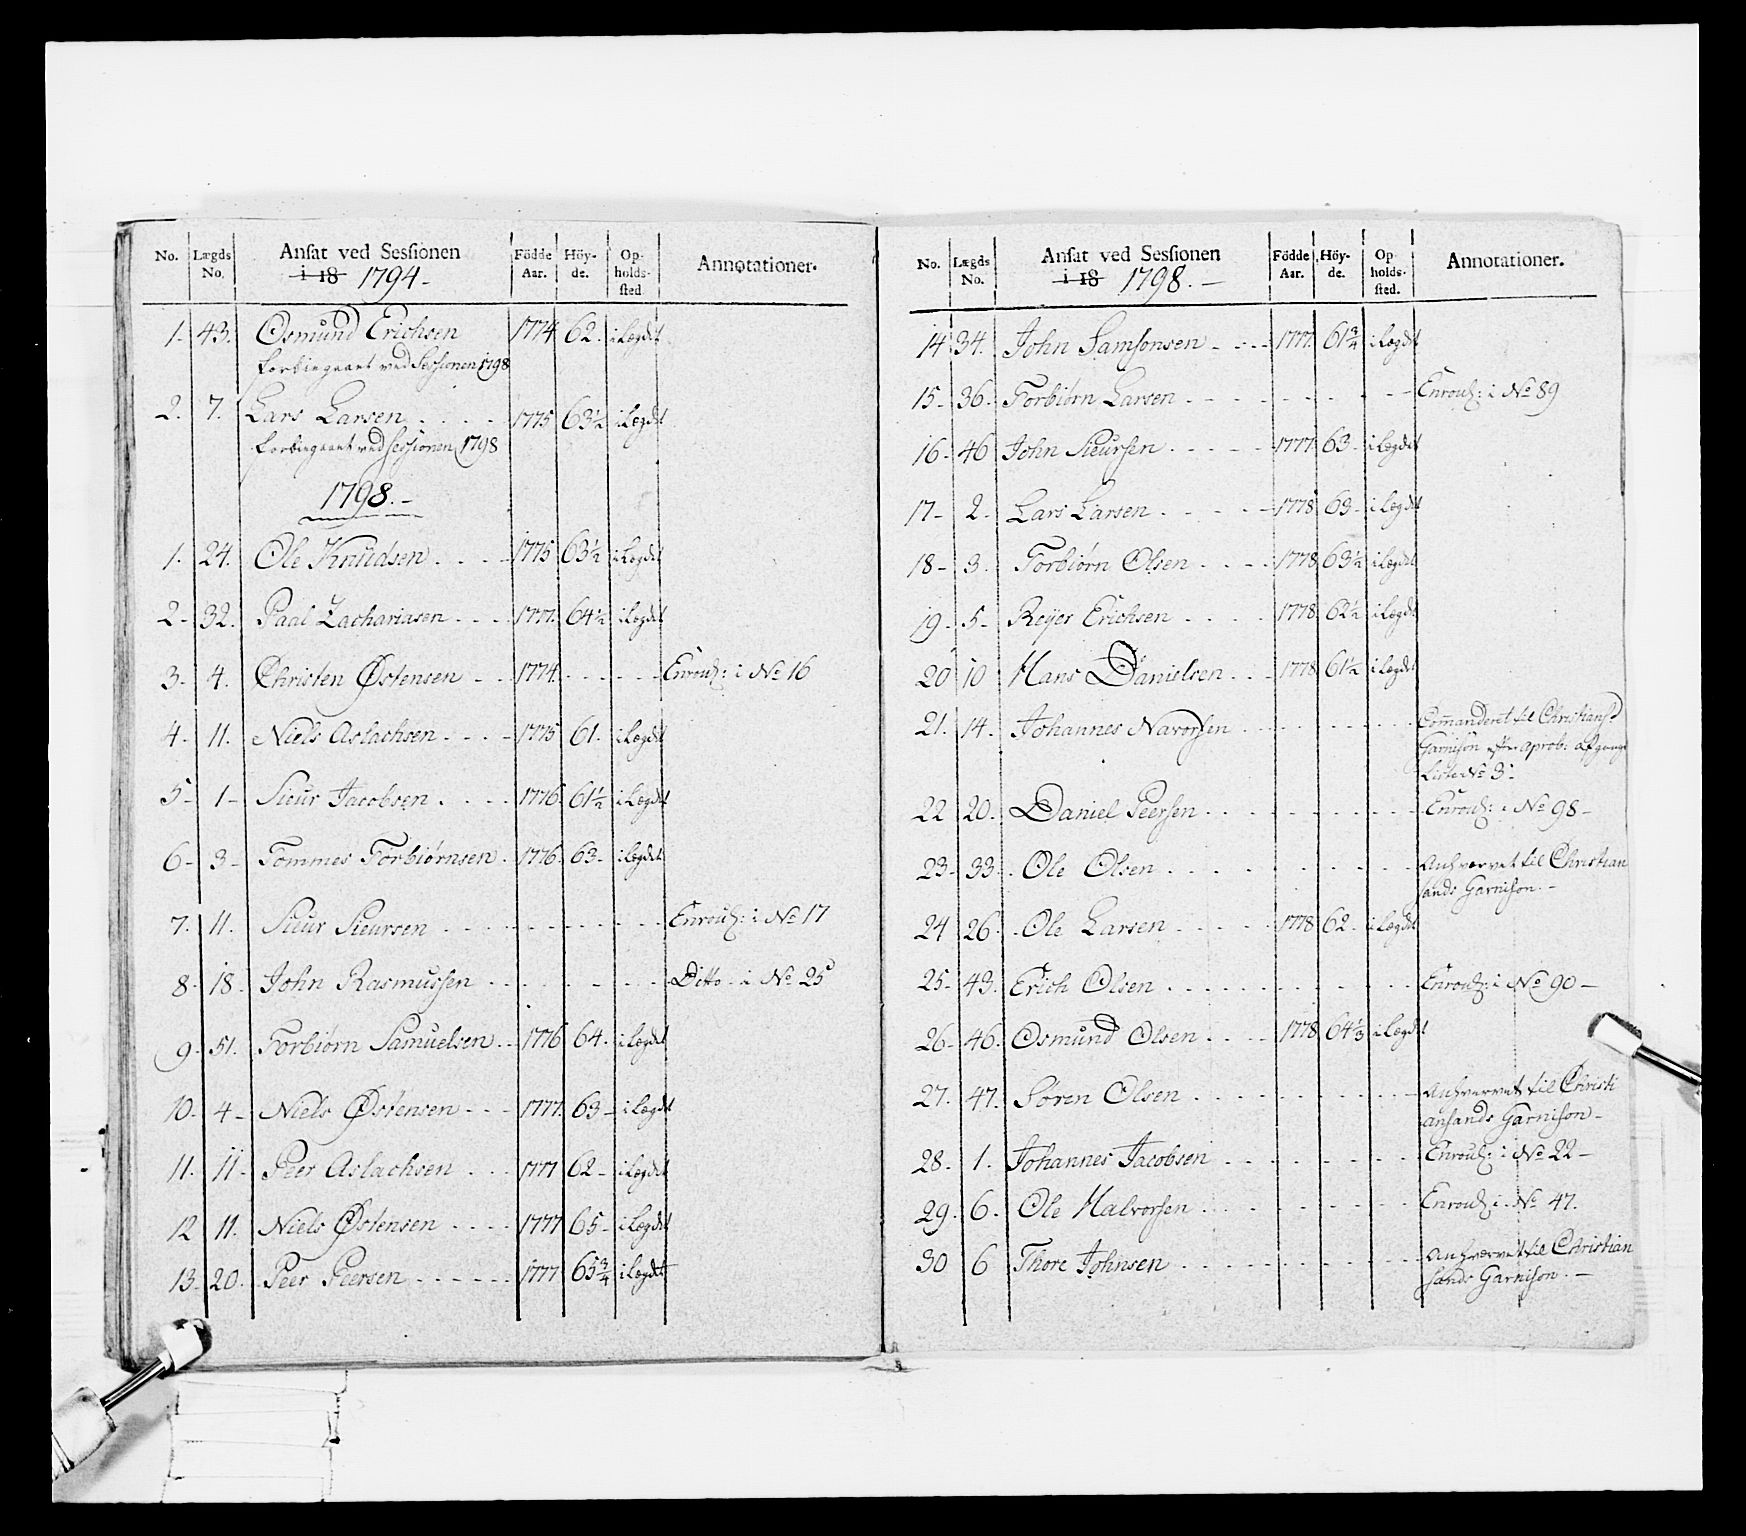 No. Lægds No. Ansat ved Sessionen i 18 1794- Födde Aar. Höy-de. Op-holds-sted. Annotationer.
1. 43. Osmund Erichsen 1774 62. i Lægdet
forbiegaaet ved Sessionen 1798
2. 7. Lars Larsen . . . . 1775 63½ i Lægdet
forbiegaaet ved Sessionen 1798
1798.-
1. 24. Ole Knudsen . . . . 1775 63½ i Lægdet
2- 32. Paal Zachariasen . . . . 1777. 64½ i Lægdet
3- 4. Christen Østensen - - 1774. - - - - Enroul: i No 16
4- 11. Niels Aslachsen . . . - 1775 61. i Lægdet
5- 1- Siur Jacobsen . . . . 1776 61½ i Lægdet
6- 3- Tommes Torbiørnsen . 1776. 63- i Lægdet
7. 11. Siur Sieursen . . . . . . . . . Enroul: i No 17
8- 18. John Rasmussen . . . . . . . . Ditto - i No 25
9- 51. Torbiørn Samuelsen . . 1776 64. i Lægdet
10- 4- Niels Østensen - - - 1777. 63- i Lægdet
11. 11- Peer Aslachsen . . . 1777 62- i Lægdet
12 11. Niels Østensen . . . . 1777 65- i Lægdet
13- 20. Peer Peersen . . . . . . 1777 65¾ i Lægdet
No. Lægds No. Ansat ved Sessionen i 18 1798.- Födde Aar. Höy-de. Op-holds-sted. Annotationer.
14 34. John Samsonsen - . . . 1777. 61¾ i Lægdet
15- 36- Torbiørn Larsen - - - - - - - - - Enroul: i No 89
16- 46 John Sieursen . . . . . 1777 63- i Lægdet
17- 2- Lars Larsen . . . . . 1778 63- i Lægdet
18- 3. Torbiørn Olsen . . . . 1778 63½ i Lægdet
19- 5- Reyer Erichsen . . . . 1778 62½ i Lægdet
20 10 Hans Danielsen . . . 1778 61½ i Lægdet
21. 14. Johannes Navorsen . . . . . . . . Commanderet til Christians
Garnison efter aprob: Afgangs
Liste No 3-
22 20. Daniel Peersen . . . . . . . . . Enroul: i No 98-
23- 33. Ole Olsen . . . . . . . . . Anhvervet til Christian
sands Garnison.-
24 26. Ole Larsen . . . . . 1778 62. i Lægdet
25- 43. Erich Olsen . . . . . . . . . Enroul: i No 90-
26- 46. Osmund Olsen . . . . 1778 64⅓ i Lægdet
27. 47. Søren Olsen . . . . . . . . . Anhvervet til Christi
ansands Garnison-
28- 1. Johannes Jacobsen . . . . . . . . Enroul: i No 22-
29. 6. Ole Halvorsen . . . . . . . . . Enroul: i No 47.
30 6 Thore Johnsen . . . . . . . . . Anhvervet til Christian
sands Garnison.-